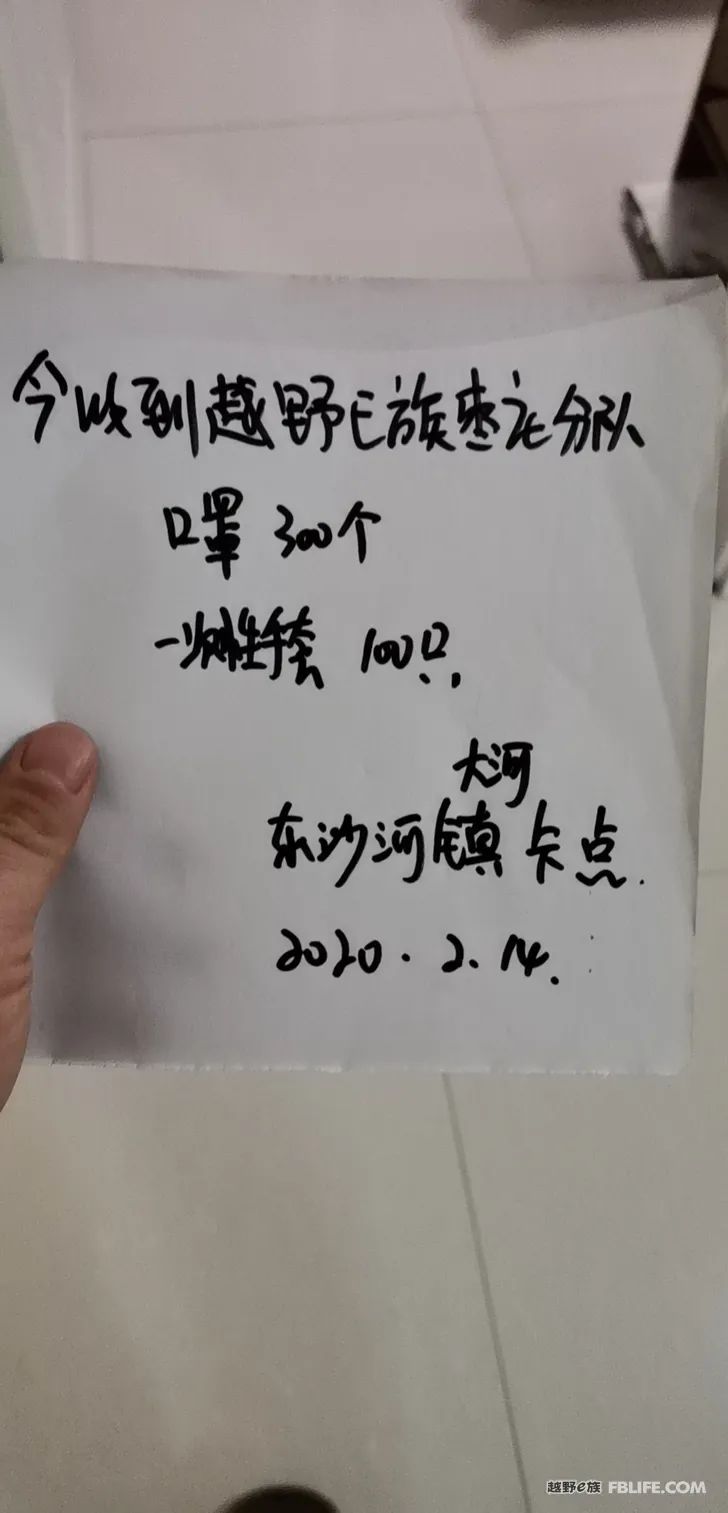 今收到越野E族枣庄分队
口罩 300个
一次性手套 100只.
大河
东沙河镇卡点.
2020.2.14.
越野e族 FBLIFE.COM